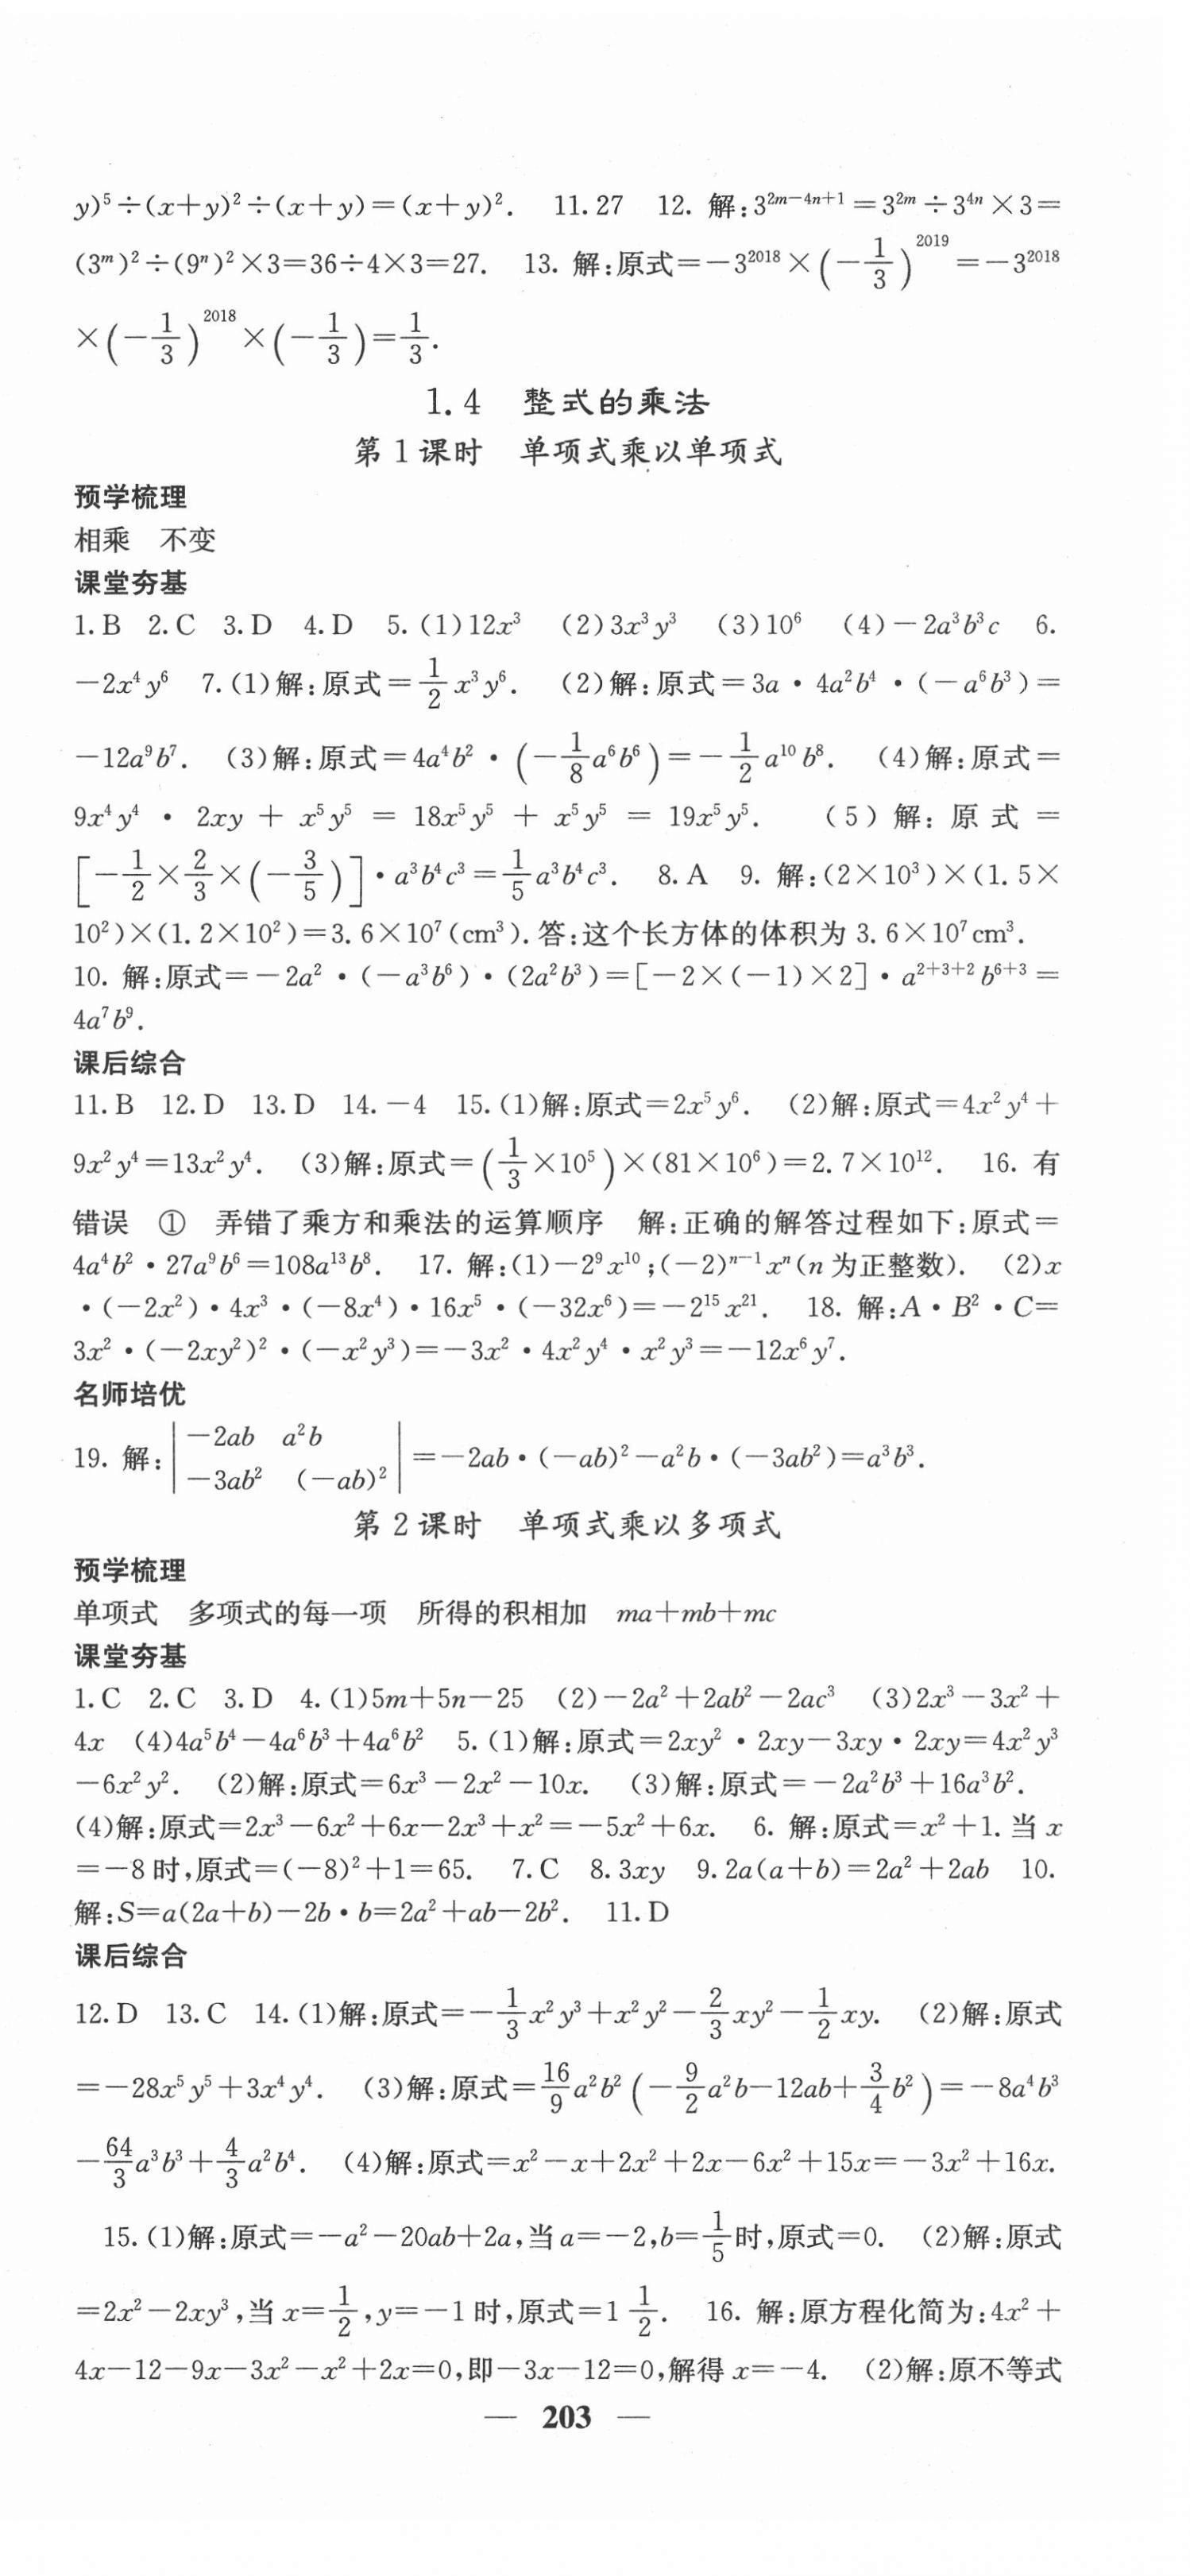 y)⁵÷(x+y)²÷(x+y)=(x+y)². 11.27 12. 解:3²ᵐ⁻⁴ⁿ⁺¹=3²ᵐ÷3⁴ⁿ×3=
(3ᵐ)²÷(9ⁿ)²×3=36÷4×3=27. 13. 解:原式=-3²⁰¹⁸×(-1/3)²⁰¹⁹=-3²⁰¹⁸
×(-1/3)²⁰¹⁸×(-1/3)=1/3.
1.4 整式的乘法
第1课时 单项式乘以单项式
预学梳理
相乘 不变
课堂夯基
1.B 2.C 3.D 4.D 5.(1)12x³ (2)3x³y³ (3)10⁶ (4)-2a³b³c 6.
-2x⁴y⁶ 7.(1)解:原式=1/2x³y⁶. (2)解:原式=3a·4a²b⁴·(-a⁶b³)=
-12a⁹b⁷. (3)解:原式=4a⁴b²·(-1/8a⁶b⁶)=-1/2a¹⁰b⁸. (4)解:原式=
9x⁴y⁴·2xy+x⁵y⁵=18x⁵y⁵+x⁵y⁵=19x⁵y⁵. (5)解:原式=
[-1/2×2/3×(-3/5)]·a³b⁴c³=1/5a³b⁴c³. 8.A 9. 解:(2×10³)×(1.5×
10²)×(1.2×10²)=3.6×10⁷(cm³).答:这个长方体的体积为3.6×10⁷cm³.
10. 解:原式=-2a²·(-a³b⁶)·(2a²b³)=[-2×(-1)×2]·a²⁺³⁺²b⁶⁺³=
4a⁷b⁹.
课后综合
11.B 12.D 13.D 14.-4 15.(1)解:原式=2x⁵y⁶. (2)解:原式=4x²y⁴+
9x²y⁴=13x²y⁴. (3)解:原式=(1/3×10⁵)×(81×10⁶)=2.7×10¹². 16. 有
错误 ① 弄错了乘方和乘法的运算顺序 解:正确的解答过程如下:原式=
4a⁴b²·27a⁹b⁶=108a¹³b⁸. 17. 解:(1)-2⁹x¹⁰;(-2)ⁿ⁻¹xⁿ(n为正整数). (2)x
·(-2x²)·4x³·(-8x⁴)·16x⁵·(-32x⁶)=-2¹⁵x²¹. 18. 解:A·B²·C=
3x²·(-2xy²)²·(-x²y³)=-3x²·4x²y⁴·x²y³=-12x⁶y⁷.
名师培优
19. 解:|-2ab a²b
-3ab² (-ab)²|=-2ab·(-ab)²-a²b·(-3ab²)=a³b³.
第2课时 单项式乘以多项式
预学梳理
单项式 多项式的每一项 所得的积相加 ma+mb+mc
课堂夯基
1.C 2.C 3.D 4.(1)5m+5n-25 (2)-2a²+2ab²-2ac³ (3)2x³-3x²+
4x (4)4a⁵b⁴-4a⁶b³+4a⁶b² 5.(1)解:原式=2xy²·2xy-3xy·2xy=4x²y³
-6x²y². (2)解:原式=6x³-2x²-10x. (3)解:原式=-2a²b³+16a³b².
(4)解:原式=2x³-6x²+6x-2x³+x²=-5x²+6x. 6. 解:原式=x²+1.当x
=-8时,原式=(-8)²+1=65. 7.C 8.3xy 9.2a(a+b)=2a²+2ab 10.
解:S=a(2a+b)-2b·b=2a²+ab-2b². 11.D
课后综合
12.D 13.C 14.(1)解:原式=-1/3x²y³+x²y²-2/3xy²-1/2xy. (2)解:原式
=-28x⁵y⁵+3x⁴y⁴. (3)解:原式=16/9a²b²(-9/2a²b-12ab+3/4b²)=-8a⁴b³
-64/3a³b³+4/3a²b⁴. (4)解:原式=x²-x+2x²+2x-6x²+15x=-3x²+16x.
15.(1)解:原式=-a²-20ab+2a,当a=-2,b=1/5时,原式=0. (2)解:原式
=2x²-2xy³,当x=1/2,y=-1时,原式=1 1/2. 16. 解:原方程化简为:4x²+
4x-12-9x-3x²-x²+2x=0,即-3x-12=0,解得x=-4. (2)解:原不等式
— 203 —